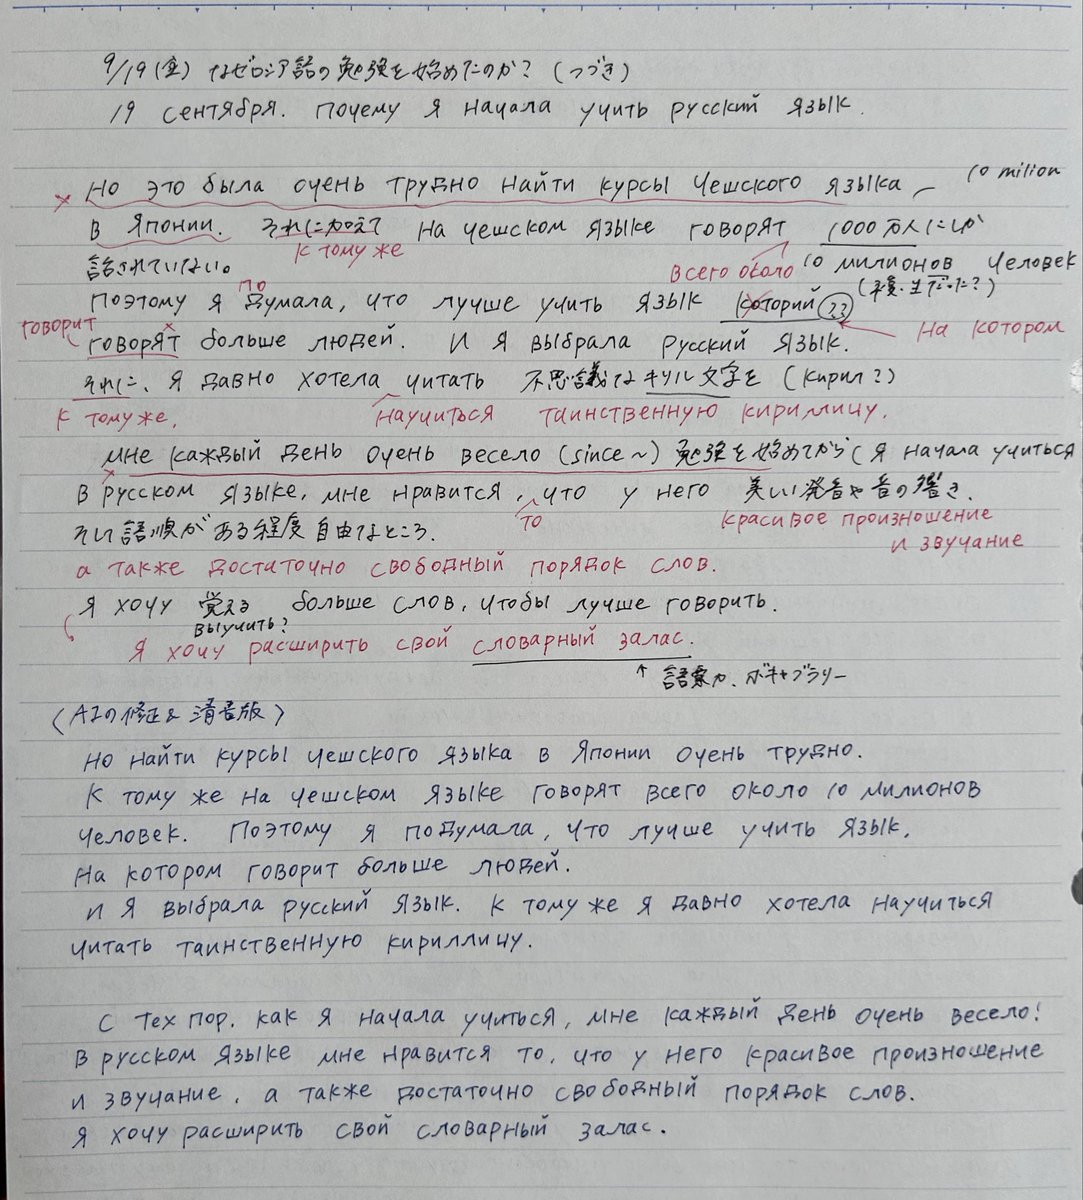 9/19(金) なぜロシア語の勉強を始めたのか？(つづき)
19 сентября. Почему я начала учить русский язык.
× Но это была очень трудно найти курсы Чешского языка 10 milion
в Японии. それに加えて на чешском языке говорят 1000万人にしか
к тому же
話されていない。 всего около 10 милионов человек
по
Поэтому я думала, что лучше учить язык которий(??) (суффикс
говорит × говорят больше людей. И я выбрала русский язык. на котором
それに、я давно хотела читать 不思議なキリル文字を (кирил?)
к тому же, научиться таинственную кириллицу.
мне каждый день очень весело (since~) 勉強を始めてから (я начала учиться
В русском языке, мне нравится, что у него 美しい発音や音の響き、
то красивое произношение
и звучание
そして語順がある程度自由なところ.
а также достаточно свободный порядок слов.
Я хочу 覚える больше слов, чтобы лучше говорить.
выучить?
Я хочу расширить свой словарный залас.
↑ 語彙力、ボキャブラリー
〈AIの修正&清書版〉
Но найти курсы чешского языка в Японии очень трудно.
К тому же на чешском языке говорят всего около 10 милионов
человек. Поэтому я подумала, что лучше учить язык,
на котором говорит больше людей.
и я выбрала русский язык. К тому же я давно хотела научиться
читать таинственную кириллицу.
С тех пор, как я начала учиться, мне каждый день очень весело!
В русском языке мне нравится то, что у него красивое произношение
и звучание, а также достаточно свободный порядок слов.
Я хочу расширить свой словарный залас.